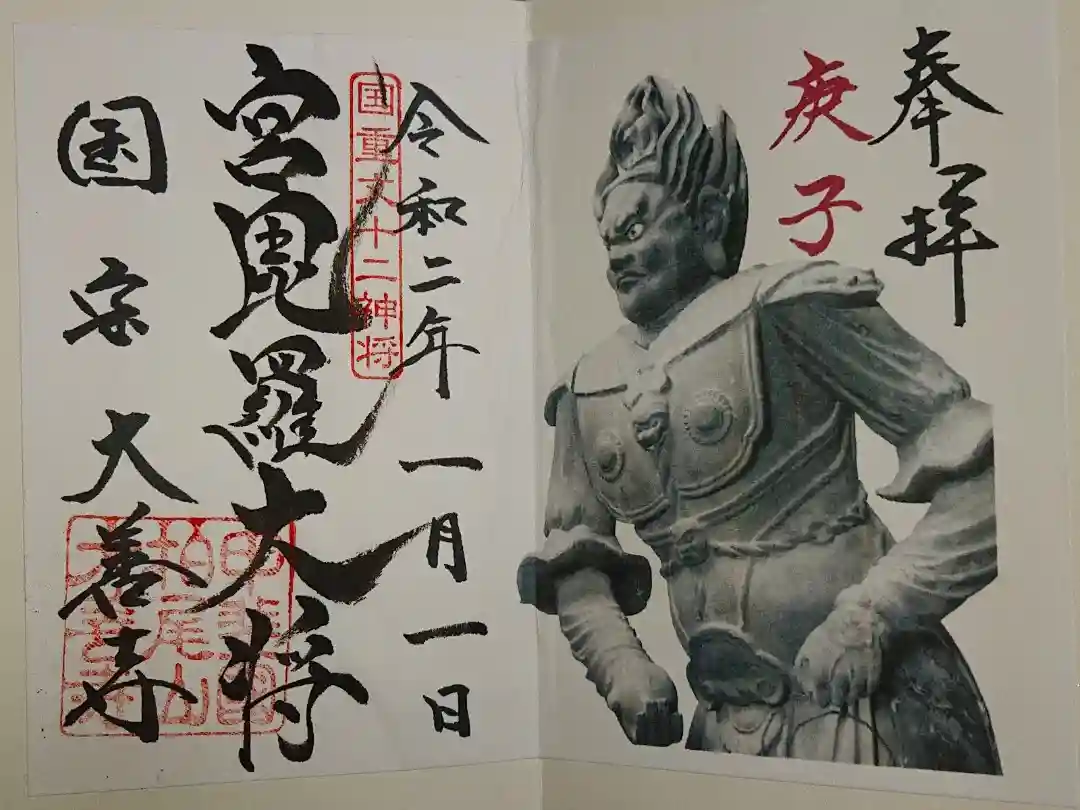 奉拝
庚子
令和二年一月一日
国重文十二神将
宮毘羅大将
国宗大善寺
甲斐国
柏尾山
大善寺